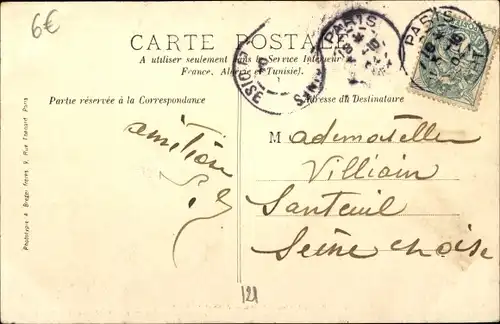 6€
CARTE POSTALE
A utiliser seulement dans le Service Intérieur
France, Algérie et Tunisie).
PARIS
PARIS
OISE
Partie réservée à la Correspondance
Adresse du Destinataire
Mademoiselle
Villiain
Santeuil
Seine & Oise
amitiés
121
Phototypie A. Breger frères, 9, Rue Thénard Paris